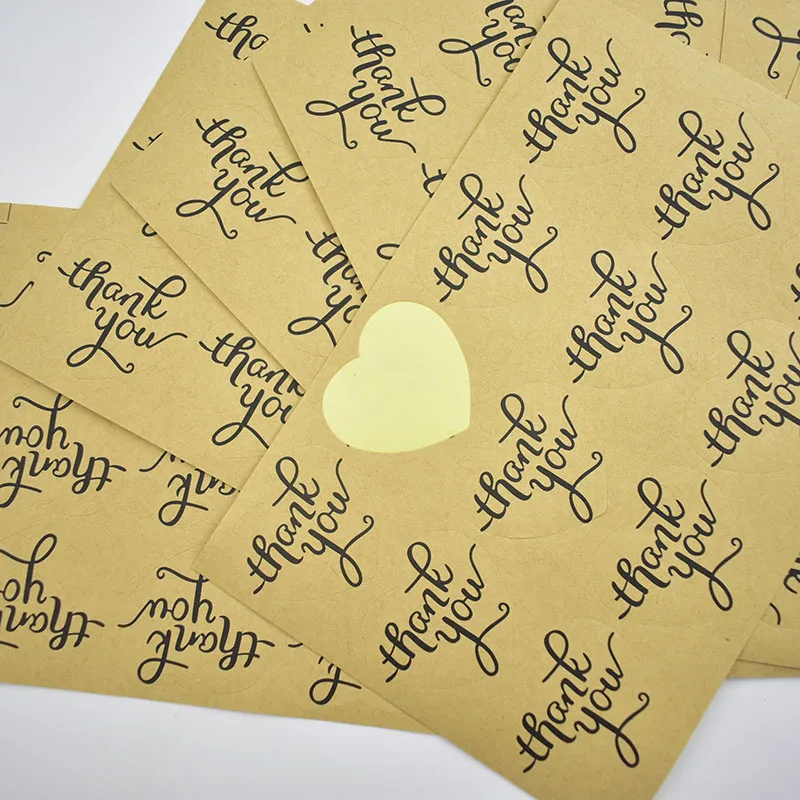 thank
you
thank
you
thank
you
thank
you
thank
you
thank
you
thank
you
thank
you
thank
you
thank
you
thank
you
thank
you
thank
you
thank
you
thank
you
thank
you